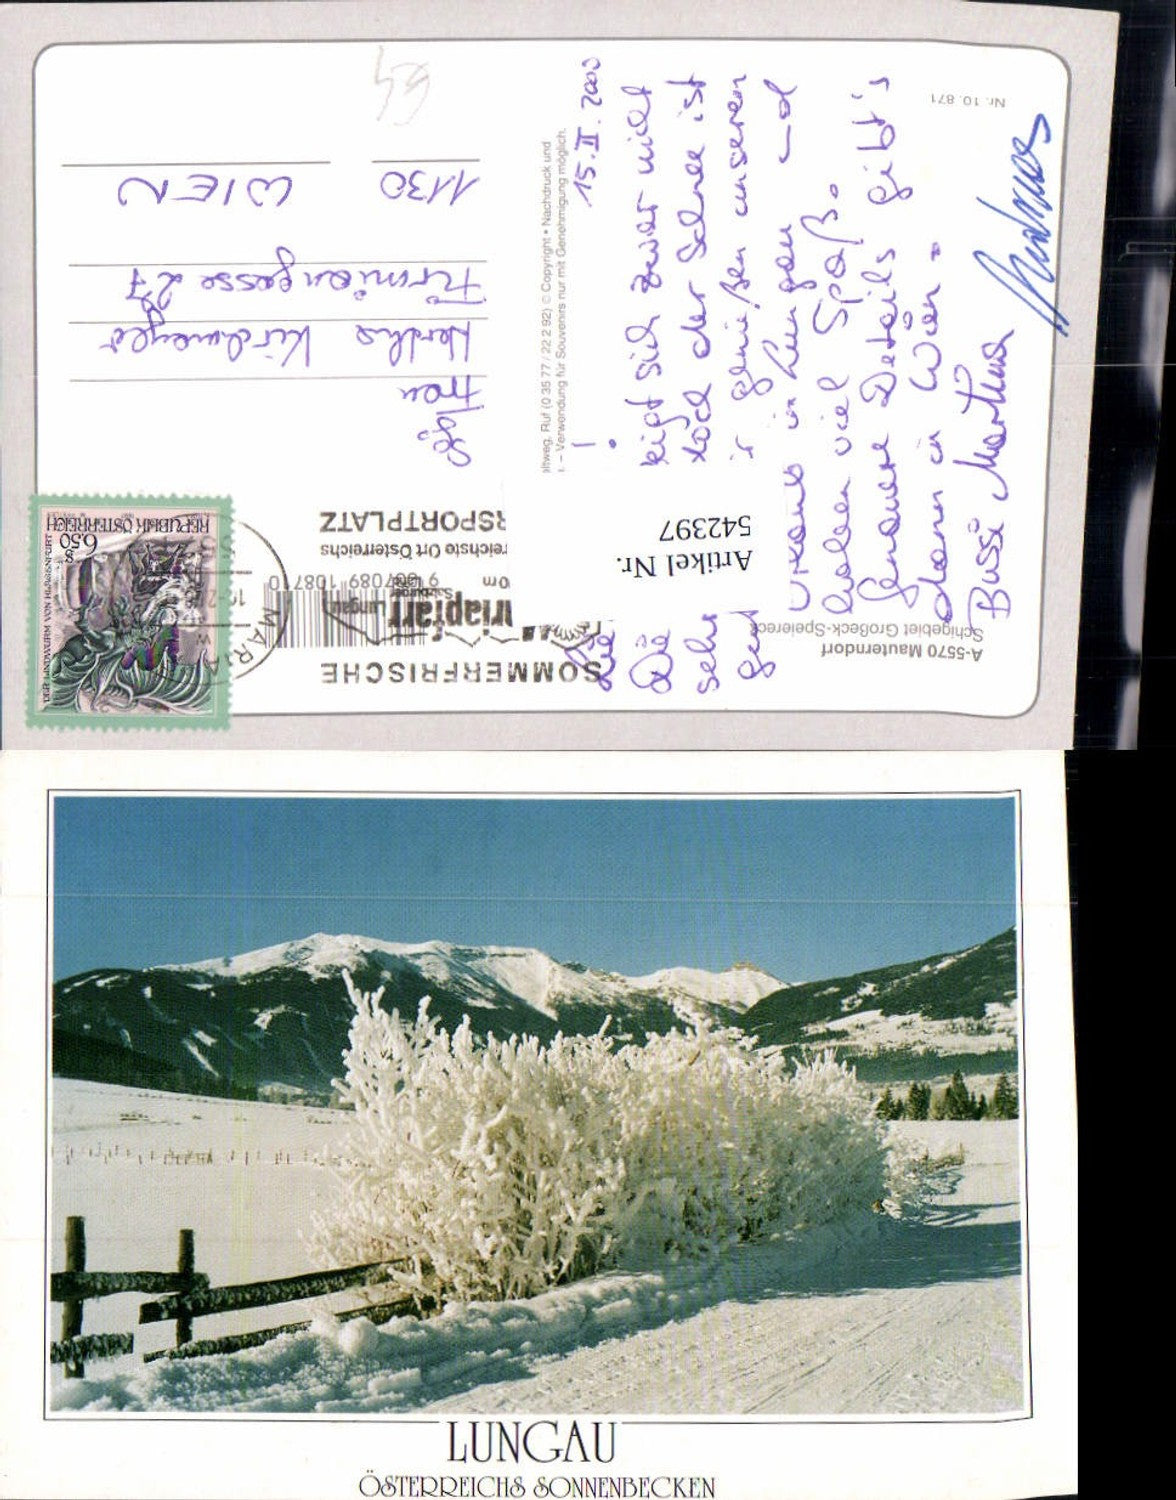 Nr. 10.871
A-5570 Mauterndorf
Schigebiet Großeck-Speiereck
15. II. 2000
Die
zeigt sich zwar nicht
sehr doch der Schnee ist
gut genießen unseren
Urlaub in Lungau und
haben viel Spaß.
Genauere Details gibt's
dann in Wien.
Bussi Martina
Artikel Nr.
542397
Ruf (0 35 77 / 22 2 92) © Copyright • Nachdruck und
– Verwendung für Souvenirs nur mit Genehmigung möglich.
SOMMERFRISCHE
riapfarr
Salzburger
Lungau
reichste Ort Österreichs
RSPORTPLATZ
9 007089 108710
MARIA
REPUBLIK ÖSTERREICH
S 6.50
DER LINDWURM VON KLAGENFURT
Frau
Hertha Kirchmeyer
Firmiangasse 27
1130 WIEN
LUNGAU
ÖSTERREICHS SONNENBECKEN